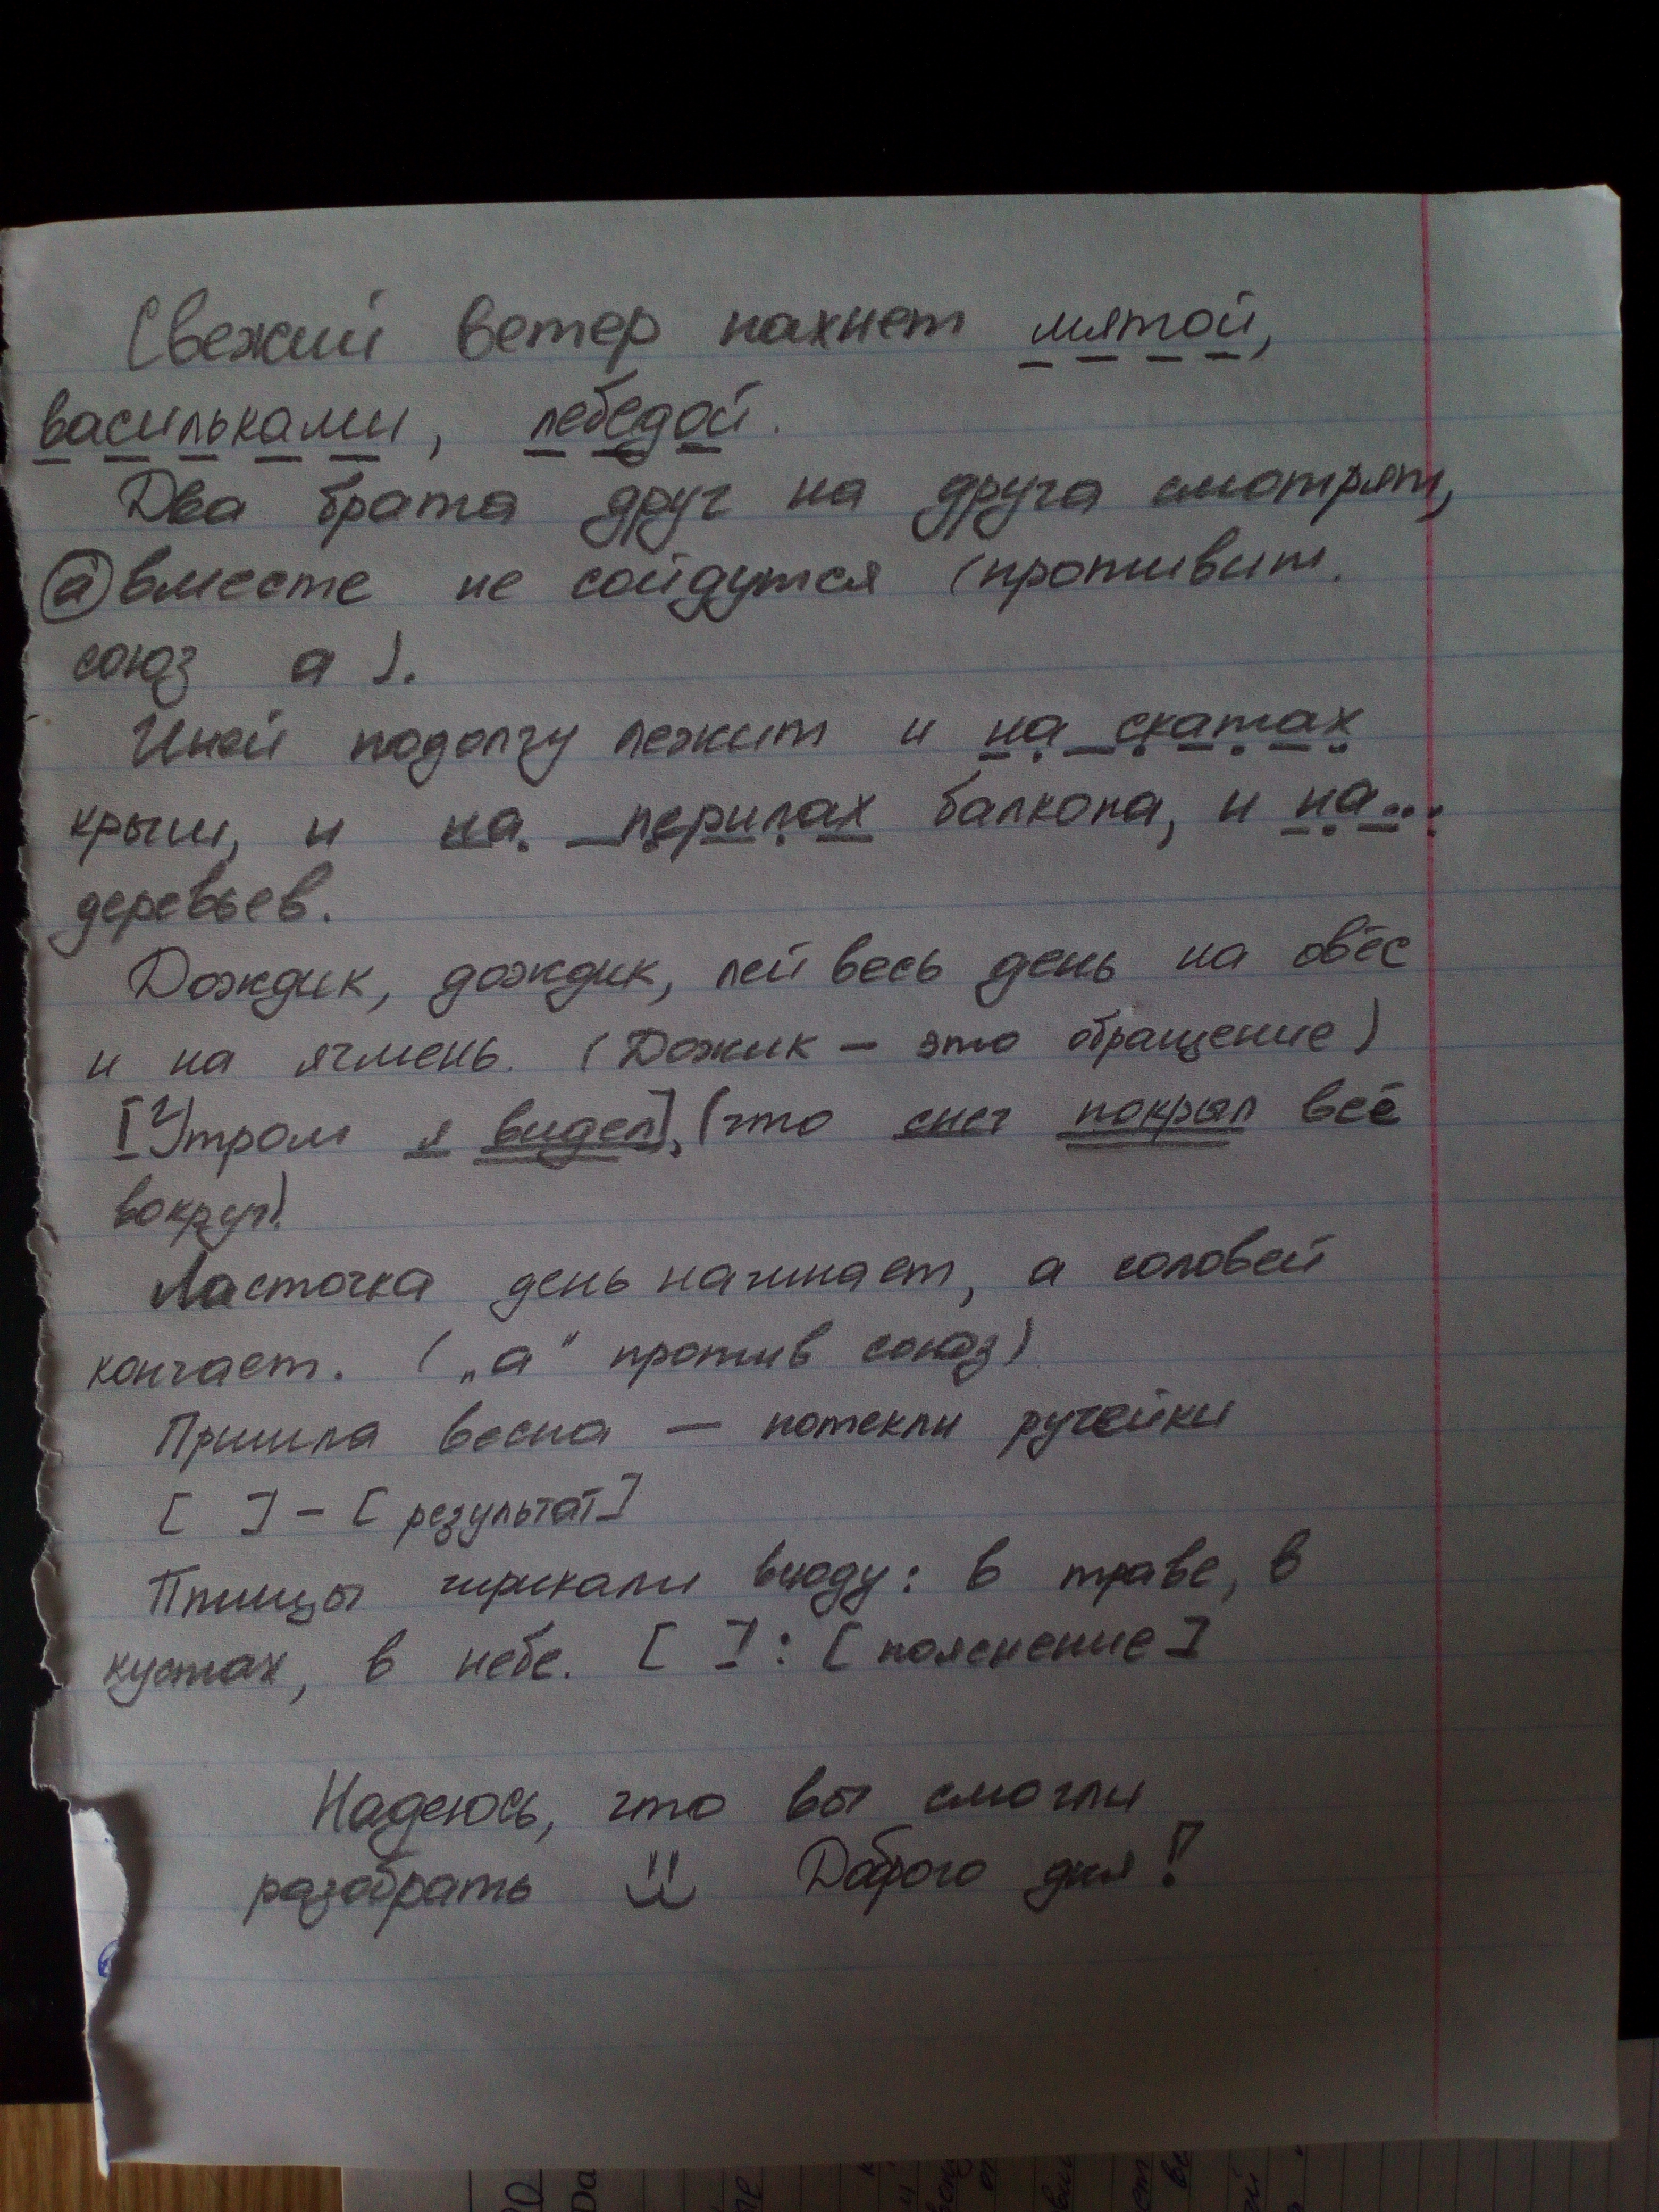 Свежий ветер пахнет мятой,
васильками, лебедой.
Два брата друг на друга смотрят,
а вместе не сойдутся (противит.
союз а).
Иней подолгу лежит и на скатах
крыш, и на перилах балкона, и на...
деревьев.
Дождик, дождик, лей весь день на овёс
и на ячмень. (Дожик – это обращение)
[Утром я видел], (что снег покрыл всё
вокруг).
Ласточка день начинает, а соловей
кончает. („а" против союз)
Пришла весна — потекли ручейки
[ ] – [результат]
Птицы чирикали всюду: в траве, в
кустах, в небе. [ ] : [пояснение]
Надеюсь, что вы смогли
разобрать Доброго дня!